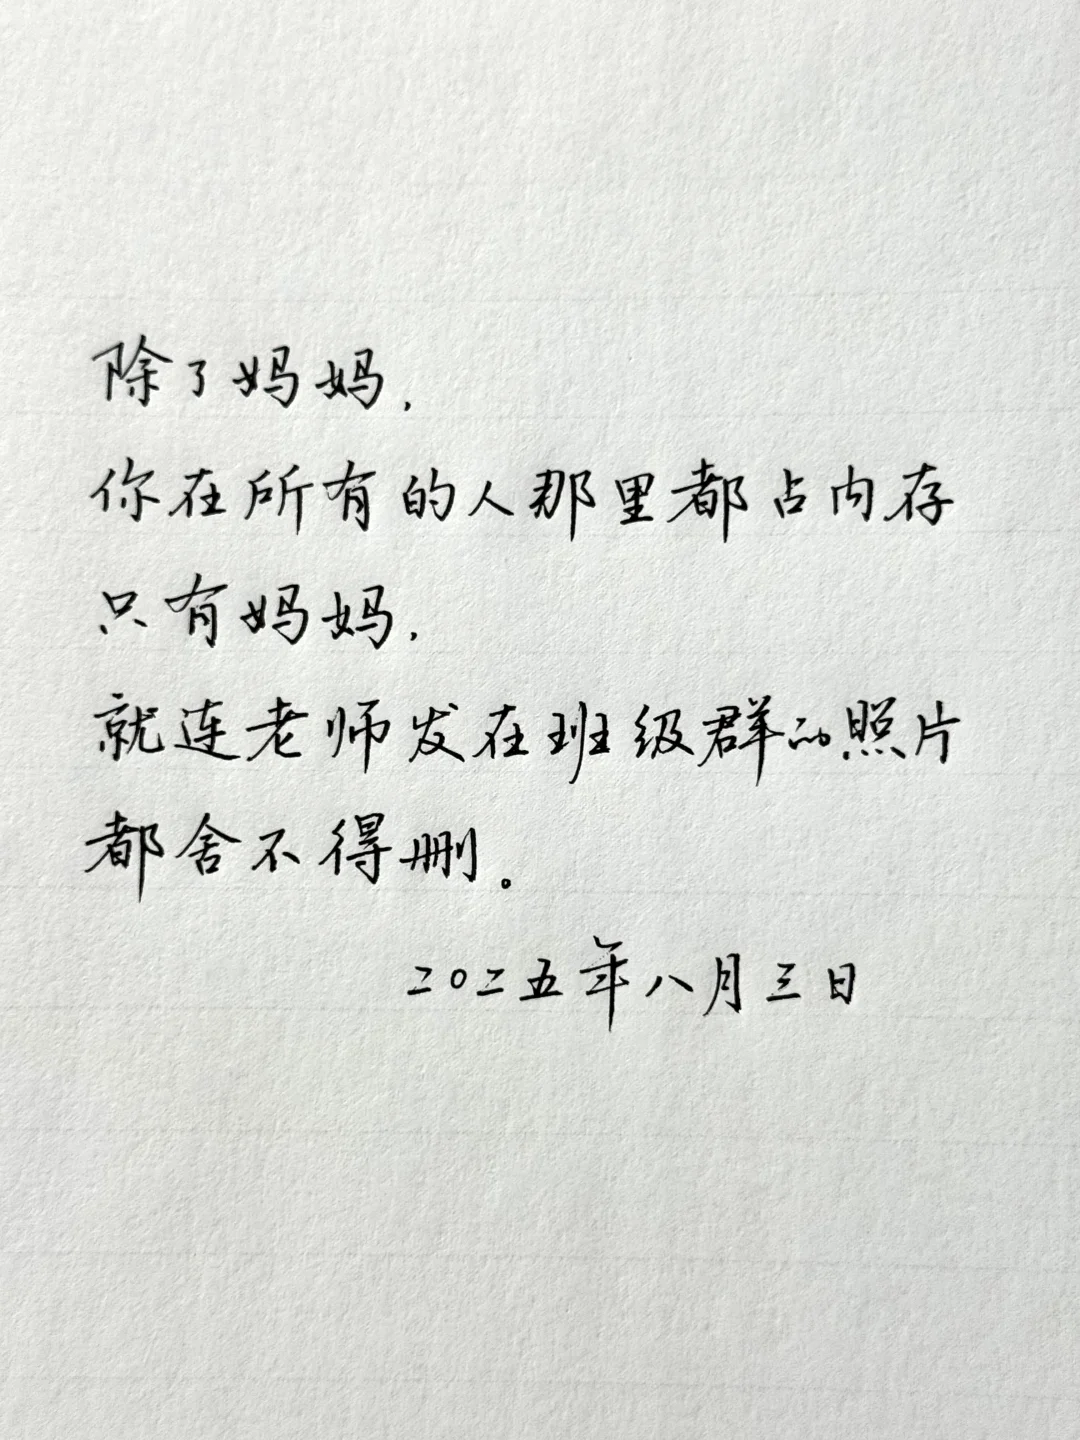 除了妈妈，
你在所有的人那里都占内存
只有妈妈，
就连老师发在班级群的照片
都舍不得删。
二〇二五年八月三日